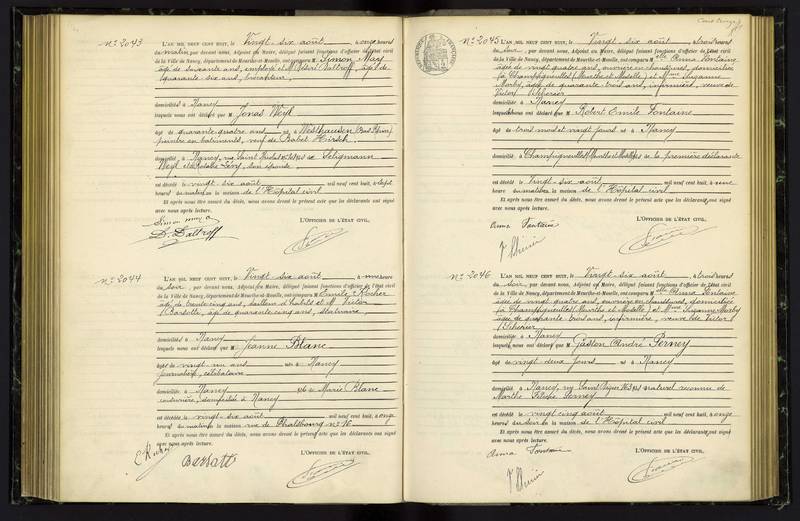 N° 2043
L'AN MIL NEUF CENT HUIT, le Vingt-six août à onze heures
du matin, par devant nous, Adjoint au Maire, délégué faisant fonctions d'officier de l'état civil
de la Ville de Nancy, département de Meurthe-et-Moselle, ont comparu M Simon May
âgé de soixante ans, employé et M Désiré Daltroff, âgé de
quarante six ans,
domiciliés à Nancy
lesquels nous ont déclaré que M Jonas Weyl
âgé de quarante quatre ans né à Westhausen (Bas Rhin)
peintre en bâtiments, veuf de Babet Hirsch.
domicilié à Nancy, rue Saint Nicolas fils de Seligmann
Weyl et de Rosalie Lévy, son épouse
est décédé le vingt-six août mil neuf cent huit, à sept
heures du matin en la maison de l'Hôpital civil
Et après nous être assuré du décès, nous avons dressé le présent acte que les déclarants ont signé
avec nous après lecture.
L'OFFICIER DE L'ÉTAT CIVIL,
Simon may
D. Daltroff
N° 2044
L'AN MIL NEUF CENT HUIT, le Vingt-six août à une heure
du soir, par devant nous, Adjoint au Maire, délégué faisant fonctions d'officier de l'état civil
de la Ville de Nancy, département de Meurthe-et-Moselle, ont comparu M Emile Rocher
âgé de trente cinq ans, tailleur d'habits et M Victor
Barsotte, âgé de quarante cinq ans, statuaire
domiciliés à Nancy
lesquels nous ont déclaré que M Jeanne Blanc
âgée de vingt un ans née à Nancy
journalière, célibataire
domiciliée à Nancy fille de Marie Blanc
couturière, domiciliée à Nancy
est décédée le vingt-six août mil neuf cent huit, à onze
heures du matin en la maison rue de Phalsbourg n° 16
Et après nous être assuré du décès, nous avons dressé le présent acte que les déclarants ont signé
avec nous après lecture.
L'OFFICIER DE L'ÉTAT CIVIL,
N° 2045
L'AN MIL NEUF CENT HUIT, le Vingt-six août à trois heures
du soir, par devant nous, Adjoint au Maire, délégué faisant fonctions d'officier de l'état civil
de la Ville de Nancy, département de Meurthe-et-Moselle, ont comparu Mlle Anna Fontaine
âgée de vingt quatre ans, ouvrière en chaussures, domiciliée
à Champigneulles (Meurthe et Moselle) et Mme Suzanne
Marby, âgée de quarante trois ans, infirmière, veuve de
Victor
domiciliée à Nancy
lesquelles nous ont déclaré que M Robert Emile Fontaine
âgé de trois mois et vingt jours né à Nancy
domicilié à Champigneulles (Meurthe et Moselle) fils de la première déclarante
est décédé le vingt-six août mil neuf cent huit, à neuf
heures du matin en la maison de l'Hôpital civil
Et après nous être assuré du décès, nous avons dressé le présent acte que les déclarants ont signé
avec nous après lecture.
L'OFFICIER DE L'ÉTAT CIVIL,
Anna Fontaine
N° 2046
L'AN MIL NEUF CENT HUIT, le Vingt-six août à trois heures
du soir, par devant nous, Adjoint au Maire, délégué faisant fonctions d'officier de l'état civil
de la Ville de Nancy, département de Meurthe-et-Moselle, ont comparu Mlle Anna Fontaine
âgée de vingt quatre ans, ouvrière en chaussures, domiciliée
à Champigneulles (Meurthe et Moselle) et Mme Suzanne Marby
âgée de quarante trois ans, infirmière, veuve de Victor
domiciliée à Nancy
lesquelles nous ont déclaré que M Gaston André Perney
âgé de vingt deux jours né à Nancy
domicilié à Nancy, rue Saint fils naturel reconnu de
Marthe Perney
est décédé le vingt cinq août mil neuf cent huit, à onze
heures du soir en la maison de l'Hôpital civil
Et après nous être assuré du décès, nous avons dressé le présent acte que les déclarants ont signé
avec nous après lecture.
L'OFFICIER DE L'ÉTAT CIVIL,
Anna Fontaine